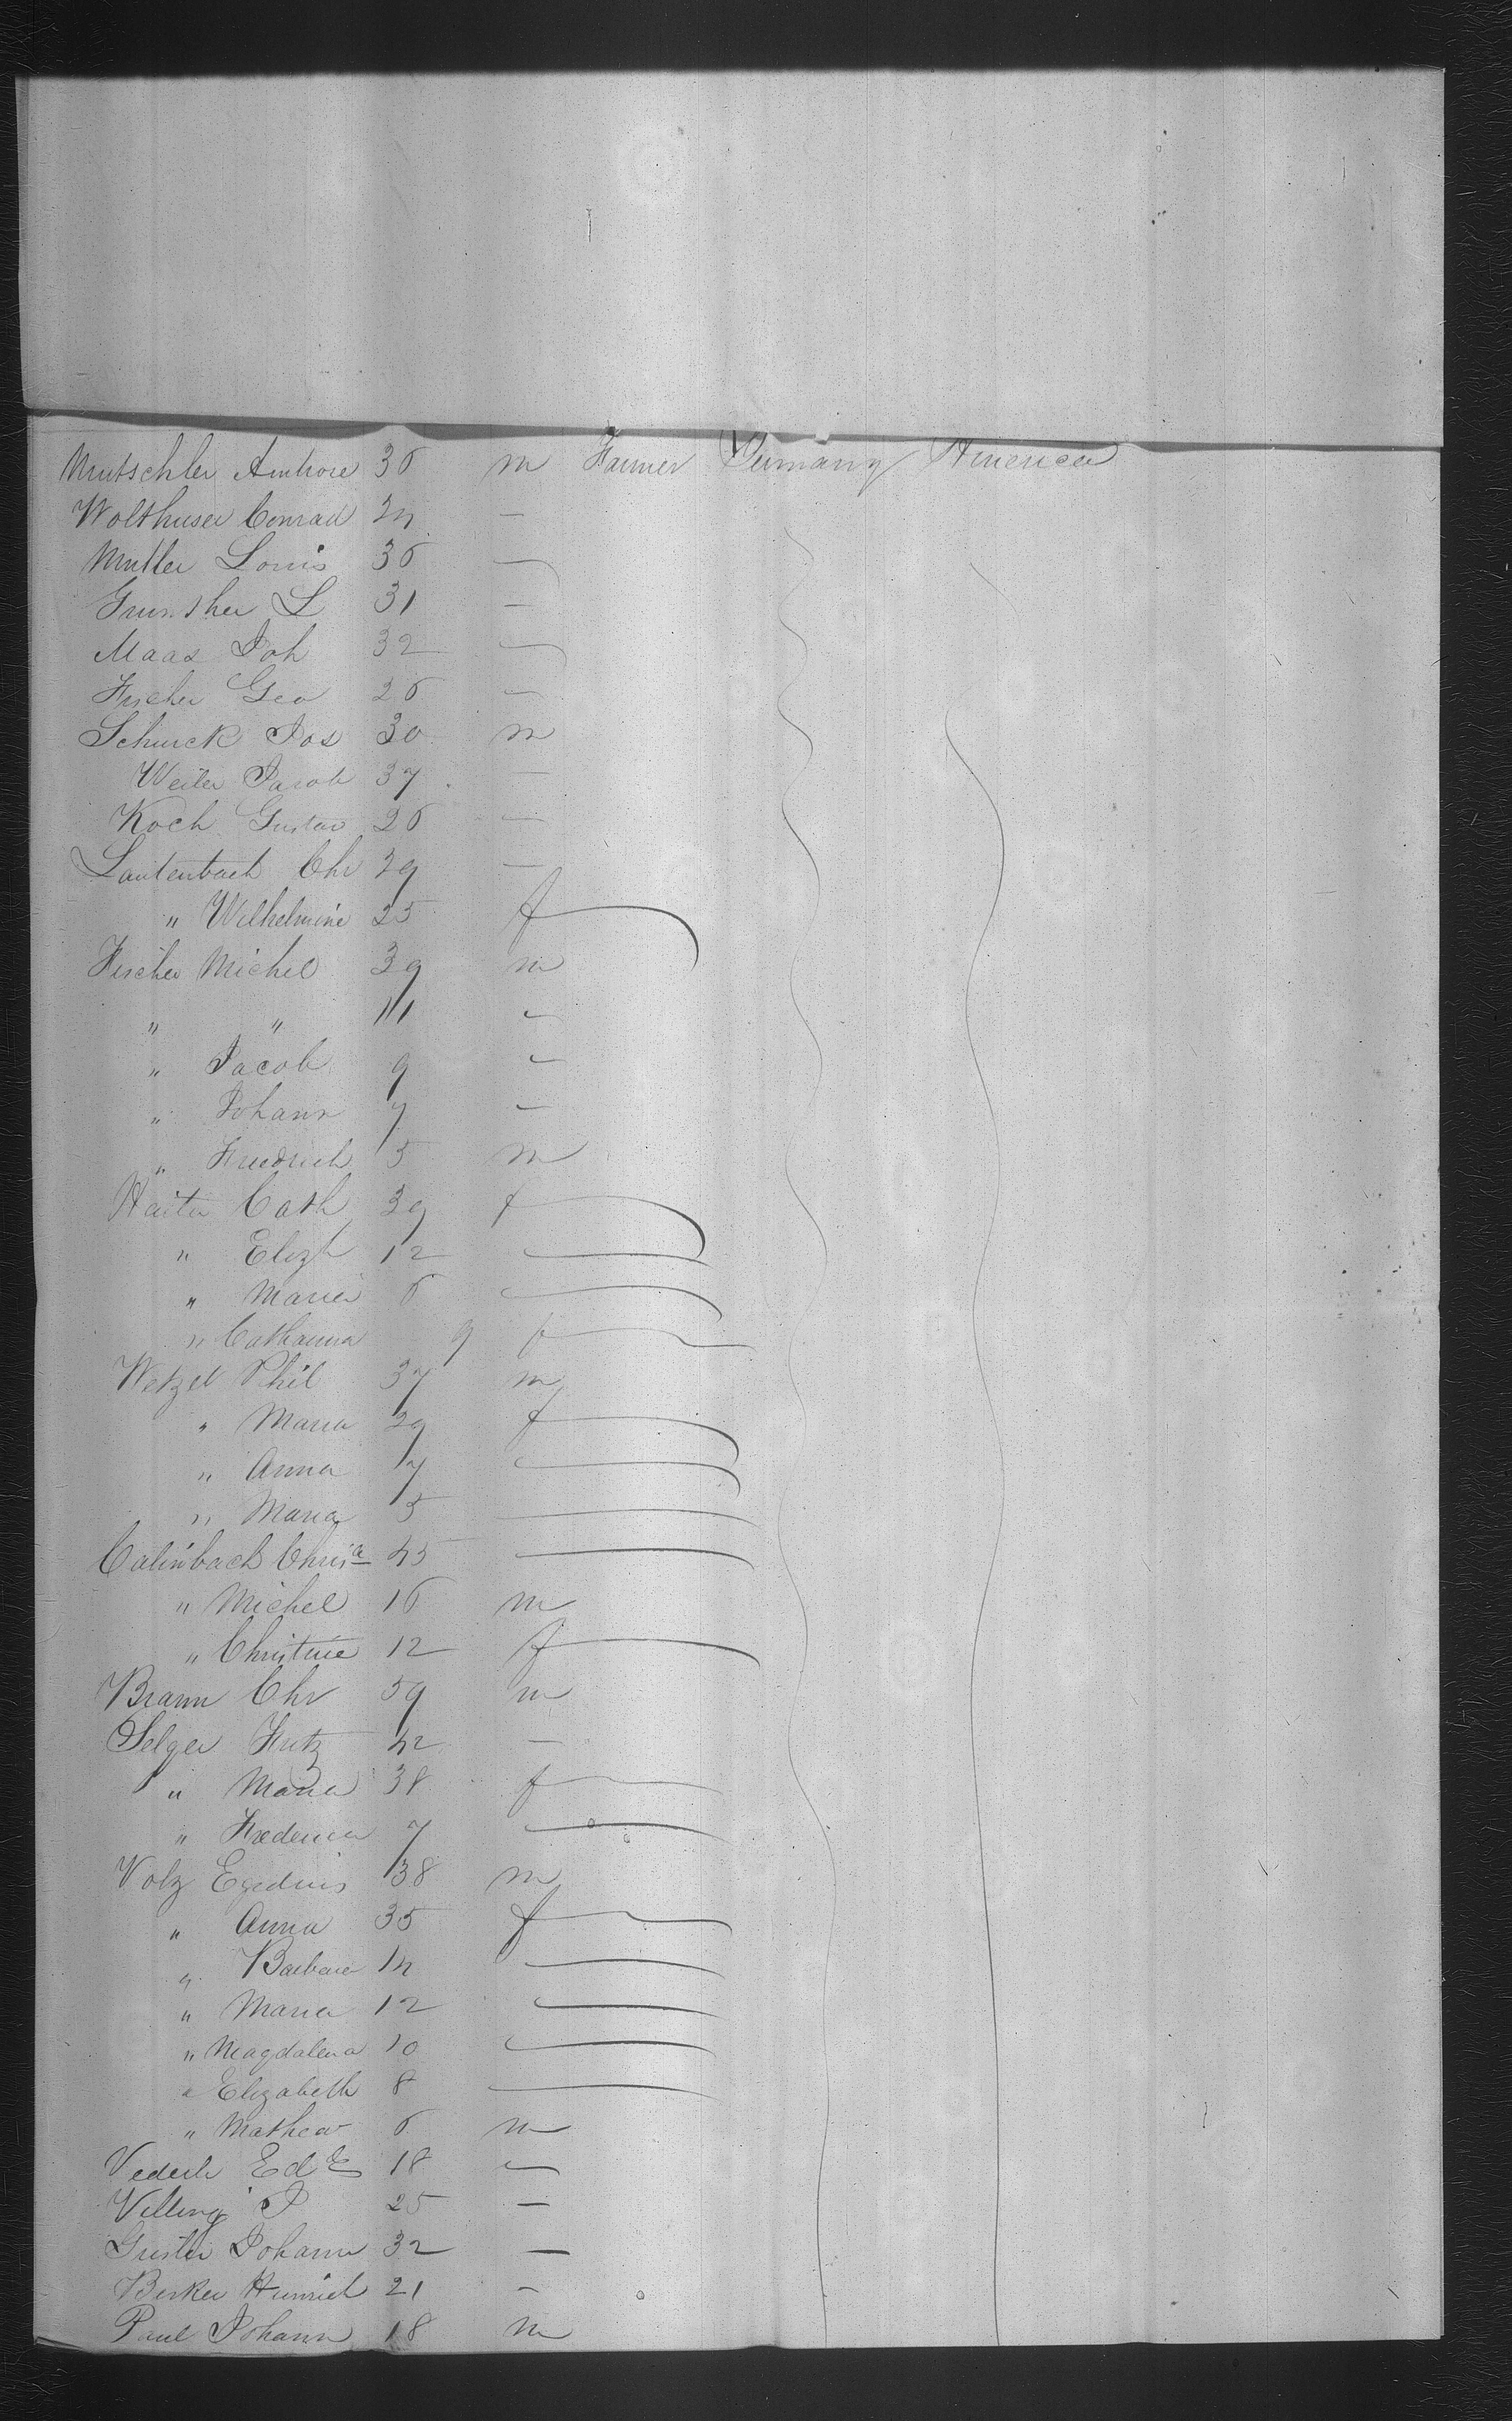 Mutschler Ambrose 36 m Farmer Germany America
Wolthuser Conrad 24 —
Muller Louis 36 —
Gunther L 31 —
Maas Joh 32 —
Fischer Geo 26 —
Schurck Jos 30 m
Weiler Jacob 37 —
Koch Gustav 26 —
Lautenbach Chr 29 —
" Wilhelmine 25 f
Fischer Michel 39 m
" " 11 —
" Jacob 9 —
" Johann 7 —
" Friedrich 5 m
Haiter Cath 39 f
" Elizh 12 —
" Maria 6 —
" Catharina 9 f
Wetzel Phil 37 m
" Maria 29 f
" Anna 7 —
" Maria 5 —
Calmbach Chrisa 45 —
" Michel 16 m
" Christine 12 f
Braun Chr 59 m
Selger Fritz 42 —
" Maria 38 f
" Frederica 7 —
Volz Egidius 38 m
" Anna 35 f
" Barbara 14 —
" Maria 12 —
" Magdalena 10 —
" Elizabeth 8 —
" Mathew 6 m
Ed E 18 —
Villing J 25 —
Johann 32 —
Berker Heinrich 21 —
Paul Johann 18 m